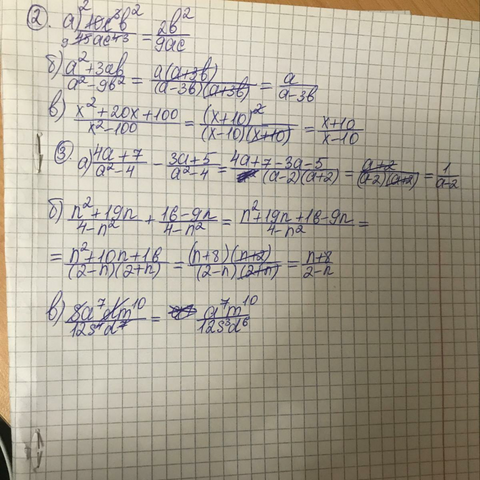 ② а) 10c³b²/45ac⁴³ = 2b²/9ac
б) a²+3ab/a²-9b² = a(a+3b)/(a-3b)(a+3b) = a/a-3b
в) x²+20x+100/x²-100 = (x+10)²/(x-10)(x+10) = x+10/x-10
③ а) 4a+7/a²-4 - 3a+5/a²-4 = 4a+7-3a-5/(a-2)(a+2) = a+2/(a-2)(a+2) = 1/a-2
б) n²+19n/4-n² + 16-9n/4-n² = n²+19n+16-9n/4-n² =
= n²+10n+16/(2-n)(2+n) = (n+8)(n+2)/(2-n)(2+n) = n+8/2-n
в) 8a⁷dm¹⁰/12s³d⁷ = a⁷m¹⁰/12s³d⁶